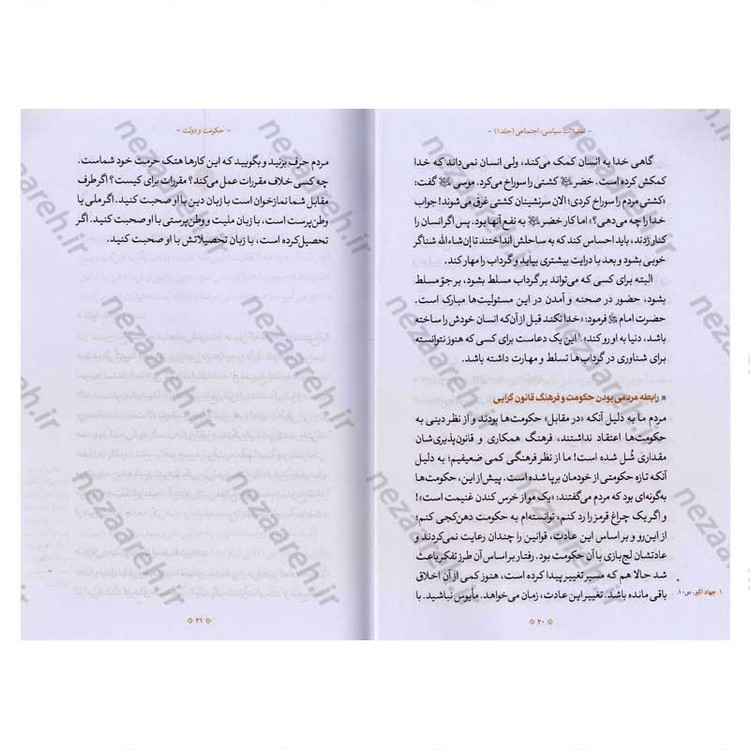 - تمثیلات سیاسی، اجتماعی (جلد ۱) -
گاهی خدا به انسان کمک می‌کند، ولی انسان نمی‌داند که خدا
کمکش کرده است. خضر کشتی را سوراخ می‌کرد. موسی گفت:
«کشتی مردم را سوراخ کردی؛ الان سرنشینان کشتی غرق می‌شوند! جواب
خدا را چه می‌دهی؟» اما کار خضر به نفع آنها بود. پس اگر انسان را
کنار زدند، باید احساس کند که به ساحلش انداختند تا إن‌شاءالله شناگر
خوبی بشود و بعد با درایت بیشتری بیاید و گرداب را مهار کند.
البته برای کسی که می‌تواند بر گرداب مسلط بشود، بر جوّ مسلط
بشود، حضور در صحنه و آمدن در این مسئولیت‌ها مبارک است.
حضرت امام فرمود: «خدا نکند قبل از آن‌که انسان خودش را ساخته
باشد، دنیا به او رو کند»؛۱ این یک دعاست برای کسی که هنوز نتوانسته
برای شناوری در گرداب‌ها تسلط و مهارت داشته باشد.
رابطه مردمی بودن حکومت و فرهنگ قانون گرایی
مردم ما به دلیل آنکه «در مقابل» حکومت‌ها بودند و از نظر دینی به
حکومت‌ها اعتقاد نداشتند، فرهنگ همکاری و قانون‌پذیری‌شان
مقداری شُل شده است! ما از نظر فرهنگی کمی ضعیفیم؛ به دلیل
آنکه تازه حکومتی از خودمان برپا شده است. پیش از این، حکومت‌ها
به‌گونه‌ای بود که مردم می‌گفتند: «یک مو از خرس کندن غنیمت است»!
و اگر یک چراغ قرمز را رد کنم، توانسته‌ام به حکومت دهن‌کجی کنم؛
از این‌رو و بر اساس این عادت، قوانین را چندان رعایت نمی‌کردند و
عادتشان لج‌بازی با آن حکومت بود. رفتار بر اساس آن طرز تفکر باعث
شد حالا هم که مسیر تغییر پیدا کرده است، هنوز کمی از آن اخلاق
باقی مانده باشد. تغییر این عادت، زمان می‌خواهد. مأیوس نباشید. با
۱. جهاد اکبر، ص۱۰.
۲۰
- حکومت و دولت -
مردم حرف بزنید و بگویید که این کارها هتک حرمت خود شماست.
چه کسی خلاف مقررات عمل می‌کند؟ مقررات برای کیست؟ اگر طرف
مقابل شما نمازخوان است با زبان دین با او صحبت کنید. اگر ملی یا
وطن‌پرست است، با زبان ملیت و وطن‌پرستی با او صحبت کنید. اگر
تحصیل‌کرده است، با زبان تحصیلاتش با او صحبت کنید.
۲۱
nezaareh.ir